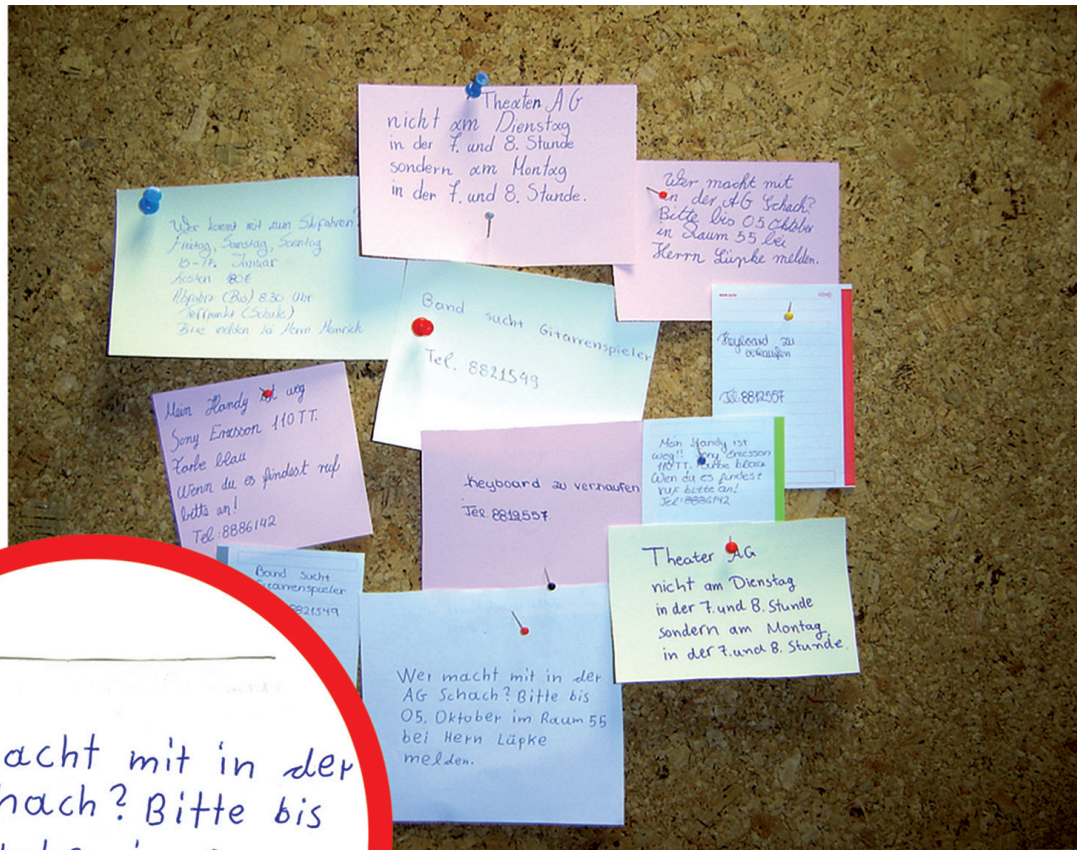 Theater AG
nicht am Dienstag
in der 7. und 8. Stunde
sondern am Montag
in der 7. und 8. Stunde.
Wer macht mit
in der AG Schach?
Bitte bis 05 Oktober
in Raum 55 bei
Herrn Lüpke melden.
Wer kommt mit zum Skifahren?
Freitag, Samstag, Sonntag
Januar
Kosten 80€
Abfahrt (Bus) 8.30 Uhr
Treffpunkt (Schule)
Bitte melden bei Herrn Heinrich
Band sucht Gitarrenspieler
Tel. 8821549
Keyboard zu
verkaufen
Tel. 8812557
Mein Handy ist weg
Sony Ericsson 110TT.
Farbe blau
Wenn du es findest ruf
bitte an!
Tel.:8886142
Keyboard zu verkaufen
Tel. 8812557
Mein Handy ist
weg!! Sony Ericsson
110TT. Farbe blau
Wen du es findest
ruf bitte an!
Tel:8886142
Theater AG
nicht am Dienstag
in der 7. und 8. Stunde
sondern am Montag
in der 7. und 8. Stunde.
Band sucht
Gitarrenspieler
8821549
Wer macht mit in der
AG Schach? Bitte bis
05. Oktober im Raum 55
bei Hern Lüpke
melden.
acht mit in der
hach? Bitte bis